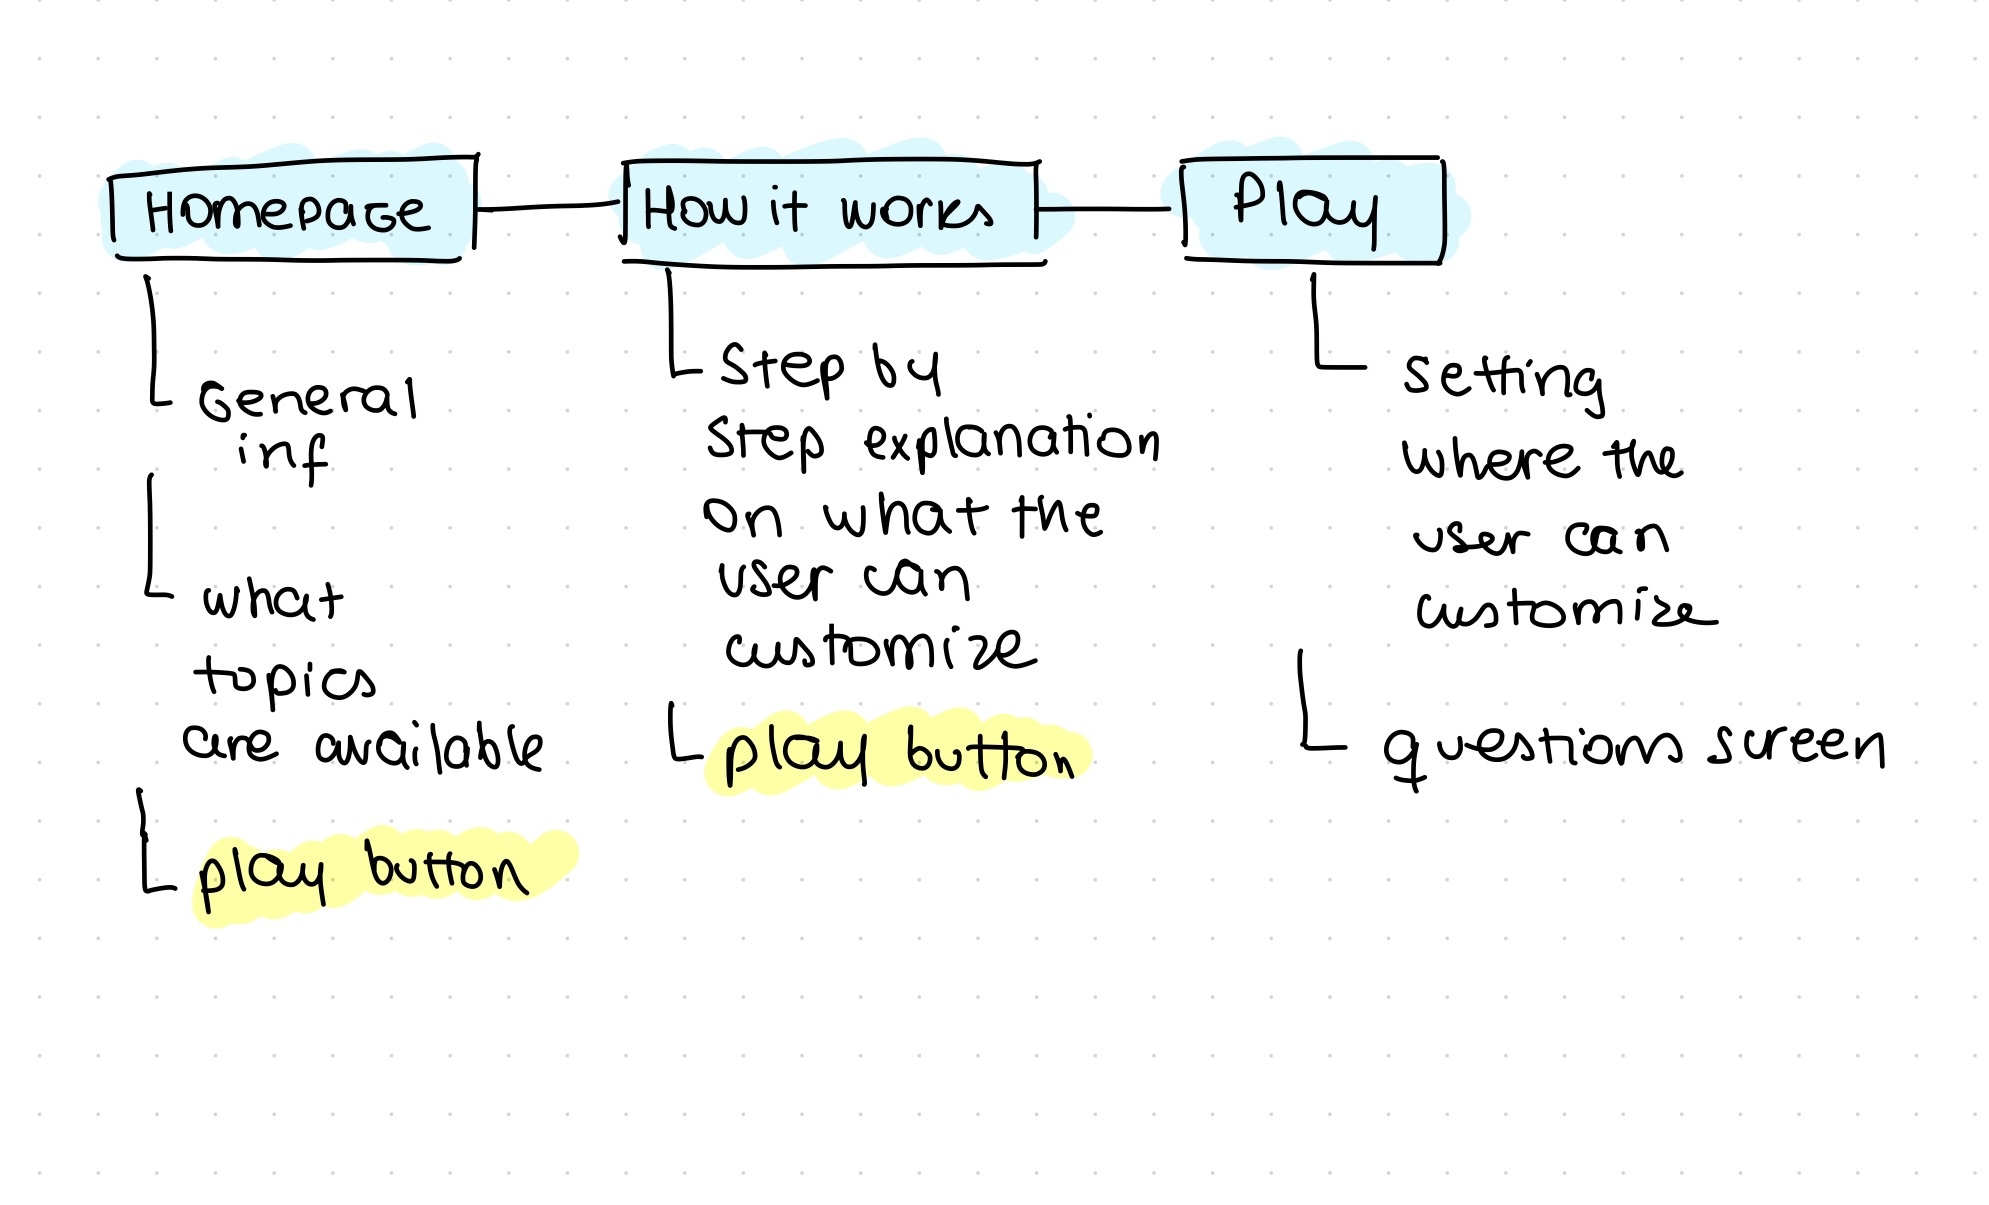 Homepage
General
inf
what
topics
are available
play button
How it works
Step by
step explanation
on what the
user can
customize
play button
Play
setting
where the
user can
customize
questions screen